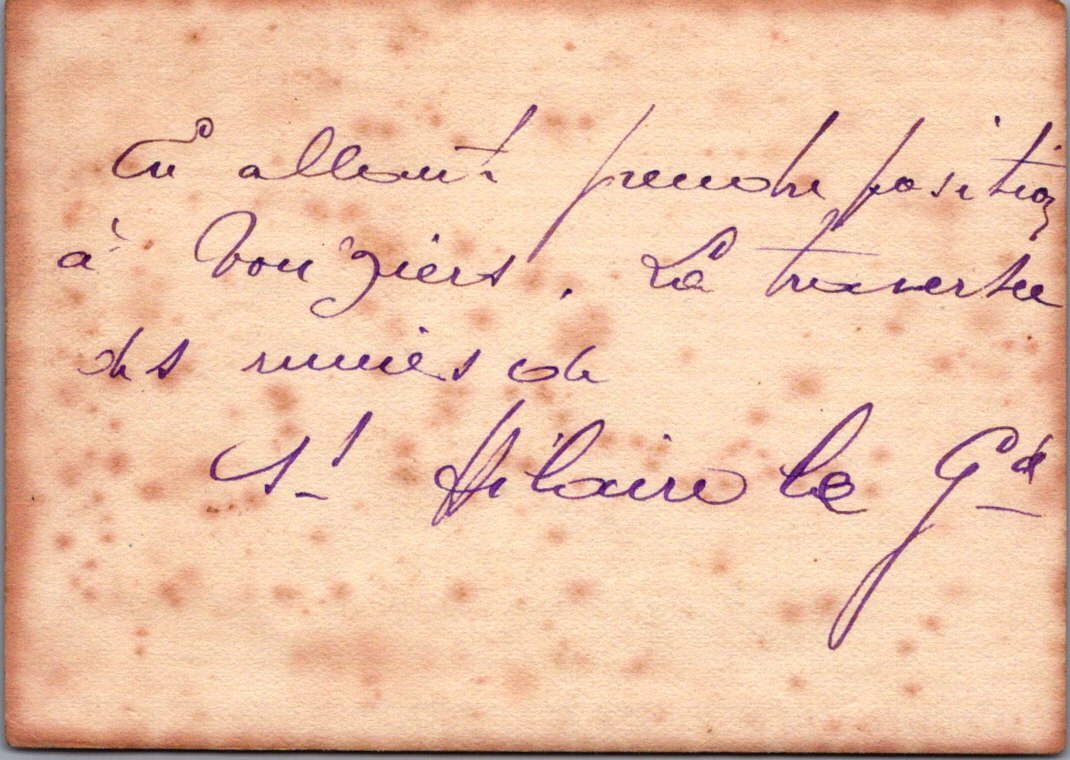 En allant prendre position
à Vouziers. La traversée
des ruines de
St Hilaire le Gd